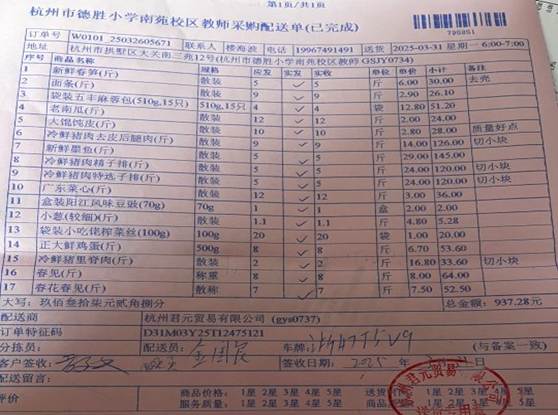 第1页/共1页
杭州市德胜小学南苑校区教师采购配送单(已完成)
790851
订单号 W0101_25032605671 联系人 楼海波 电话 19967491491 送货 2025-03-31 星期一 6:00-7:00
地址 杭州市拱墅区大关南三苑12号(杭州市德胜小学南苑校区教师 GSJY0734)
序号 商品名称 规格 应发 实发 实收 单位 单价 小计 备注
1 新鲜春笋(斤) 散装 5 5 斤 6.00 30.00 去壳
2 面条(斤) 散装 9 9 斤 2.90 26.10
3 袋装五丰麻蓉包(510g,15只) 510g,15只 4 4 袋 12.80 51.20
4 老南瓜(斤) 散装 12 12 斤 2.00 24.00
5 大馄饨皮(斤) 散装 10 10 斤 2.80 28.00 质量好点
6 冷鲜猪肉去皮后腿肉(斤) 散装 9 9 斤 14.00 126.00 切小块
7 新鲜墨鱼(斤) 散装 5 5 斤 29.00 145.00
8 冷鲜猪肉精子排(斤) 散装 5 5 斤 24.00 120.00 切小块
9 冷鲜猪肉特选子排(斤) 散装 5 5 斤 24.00 120.00 切小块
10 广东菜心(斤) 散装 12 12 斤 3.00 36.00
11 盒装阳江风味豆豉(70g) 70g 1 1 盒 2.00 2.00
12 小葱(较细)(斤) 散装 1.1 1.1 斤 4.80 5.28
13 袋装小吃佬榨菜丝(100g) 100g 20 20 袋 1.00 20.00
14 正大鲜鸡蛋(斤) 500g 8 8 斤 6.70 53.60
15 冷鲜猪里脊肉(斤) 散装 2 2 斤 16.80 33.60 切小块
16 春见(斤) 称重 8 8 斤 8.00 64.00
17 春花春见(斤) 散称 7 7 斤 7.50 52.50
大写: 玖佰叁拾柒元贰角捌分 总金额: 937.28元
配送商 杭州君元贸易有限公司 (gys0737)
订单特征码 D31M03Y25T12475121
分拣员: 配送员: 车牌: (与备案一致)
客户签收: 签收日期: 2025
配送留言:
评价 商品价格: 1星 2星 3星 4星 5星 送货
服务质量: 1星 2星 3星 4星 5星
州君元贸易